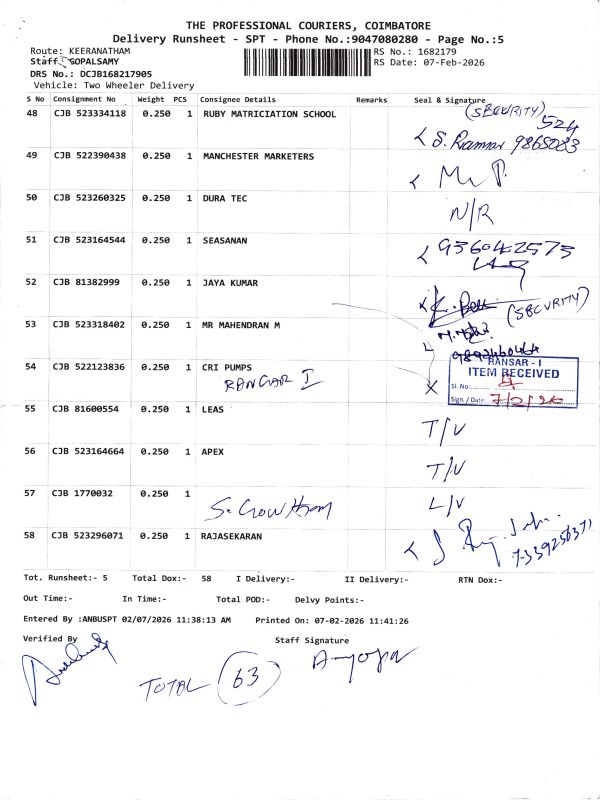 THE PROFESSIONAL COURIERS, COIMBATORE
Delivery Runsheet - SPT - Phone No.:9047080280 - Page No.:5
Route: KEERANATHAM RS No.: 1682179
Staff: GOPALSAMY RS Date: 07-Feb-2026
DRS No.: DCJB168217905
Vehicle: Two Wheeler Delivery
S No Consignment No Weight PCS Consignee Details Remarks Seal & Signature
(SECURITY)
48 CJB 523334118 0.250 1 RUBY MATRICIATION SCHOOL 524
9865083
49 CJB 522390438 0.250 1 MANCHESTER MARKETERS
50 CJB 523260325 0.250 1 DURA TEC N/R
51 CJB 523164544 0.250 1 SEASANAN 936042573
52 CJB 81382999 0.250 1 JAYA KUMAR (SECURITY)
53 CJB 523318402 0.250 1 MR MAHENDRAN M
RANSAR - I
54 CJB 522123836 0.250 1 CRI PUMPS ITEM RECEIVED
RANGAR I Sl. No:
Sign. / Date: 7/2/26
55 CJB 81600554 0.250 1 LEAS T/V
56 CJB 523164664 0.250 1 APEX T/V
57 CJB 1770032 0.250 1 L/V
S. Gowtham
58 CJB 523296071 0.250 1 RAJASEKARAN
Tot. Runsheet:- 5 Total Dox:- 58 I Delivery:- II Delivery:- RTN Dox:-
Out Time:- In Time:- Total POD:- Delvy Points:-
Entered By :ANBUSPT 02/07/2026 11:38:13 AM Printed On: 07-02-2026 11:41:26
Verified By Staff Signature
TOTAL 63